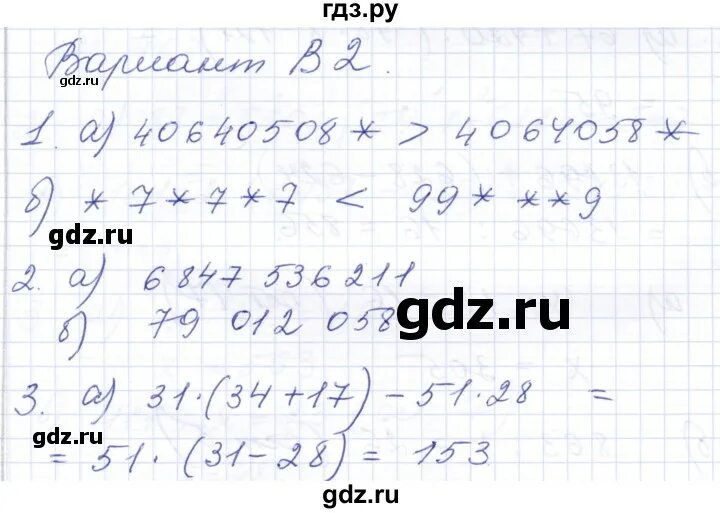 гдз.ру
Вариант В2.
gdz.ru
1. а) 40640508* > 4064058*
б) *7*7*7 < 99* **9
gdz.ru
2. а) 6847 536 211
gdz.ru
б) 79 012 058
3. а) 31·(34+17) - 51·28 =
gdz.ru
= 51· (31-28) = 153
gdz.ru